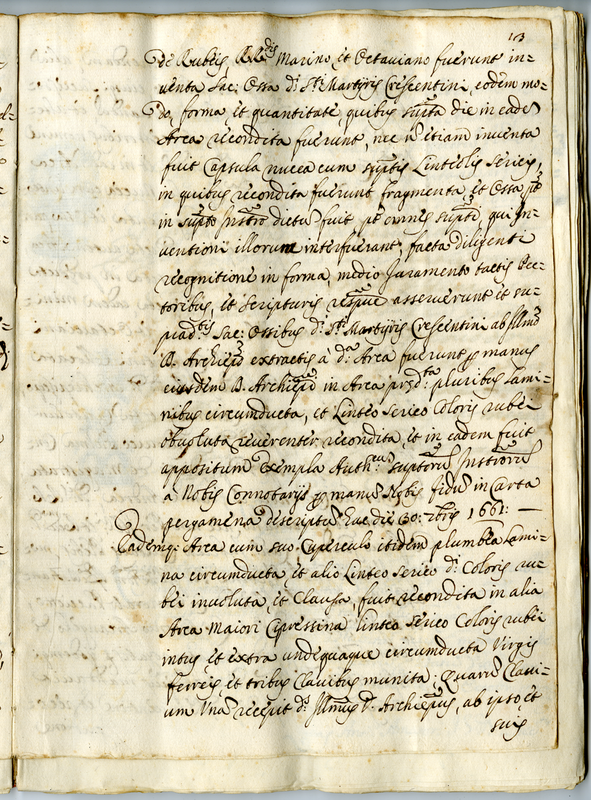 113
De Rubeis RR.dis Marino, et Octaviano fuerunt in-
venta Sac: Ossa d.i S.ti Martyris Crescentini, eodem mo-
Do, forma et quantitate, quibus supta die in eadẽ
Area recondita fuerunt, nec nõ etiam inventa
fuit Capsula nucea cum suptis Linteolis Sericis,
in quibus recondita fuerunt fragmenta, et Ossa
in supto Instro dicta fuit omnes supti, qui In-
ventioni illorum interfuerant, facta Diligenti
recognitione in forma, medio Juramento tactis Pec-
toribus, et Scripturis respue asseruerunt et su-
pradtis Sac: Ossibus d.i S.ti Martyris Crescentini ab Illmo
D. Archiepo extractis à d.a Area fuerunt p manus
eiusdem D. Archiepi in Area pred.ta pluribus Lami-
nibus circumducta, et Linteo Serico Coloris rubei
obvoluta reverenter recondita, et in eadem fuit
appositum Exempla Auth: suptorũ Instrorũ
a Nobis Connotarijs p manũ Nobis fidũ in Carta
pergamena descripta hac die 30: 7bris 1661: —
Eademq: Area cum suo Cuperculo itidem plumbea Lami-
na circumducta, et alio Linteo Serico d.i Coloris ru-
bei involuta, et Clausa, fuit recondita in alia
Area Maiori Cipressina linteo Serico Coloris rubei
intus, et extra undequaque circumducta Virgis
ferreis, et tribus Clavibus munita; Quarũ Clavi-
um Unã recepit d.s Illmus D. Archiepus, ab ipso, et
suis